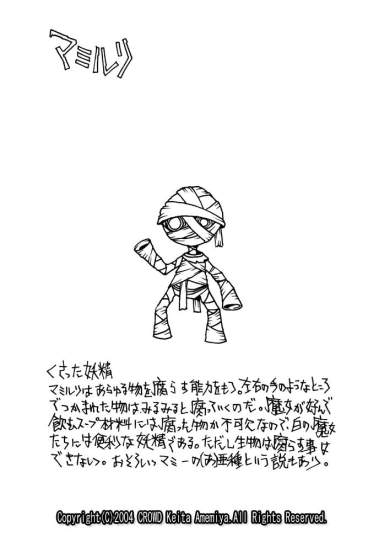 マミルリ
くさった妖精
マミルリはあらゆる物を腐らす能力をもつ。左右の手のようなところ
でつかまれた物はみるみると腐っていくのだ。魔女が好んで
飲むスープ材料には腐った物が不可欠なので、白の魔女
たちには便利な妖精である。ただし生物は腐らす事は
できない。おそろしいマミーの亜種という説もあり。
Copyright(C)2004 CROWD Keita Amemiya.All Rights Reserved.